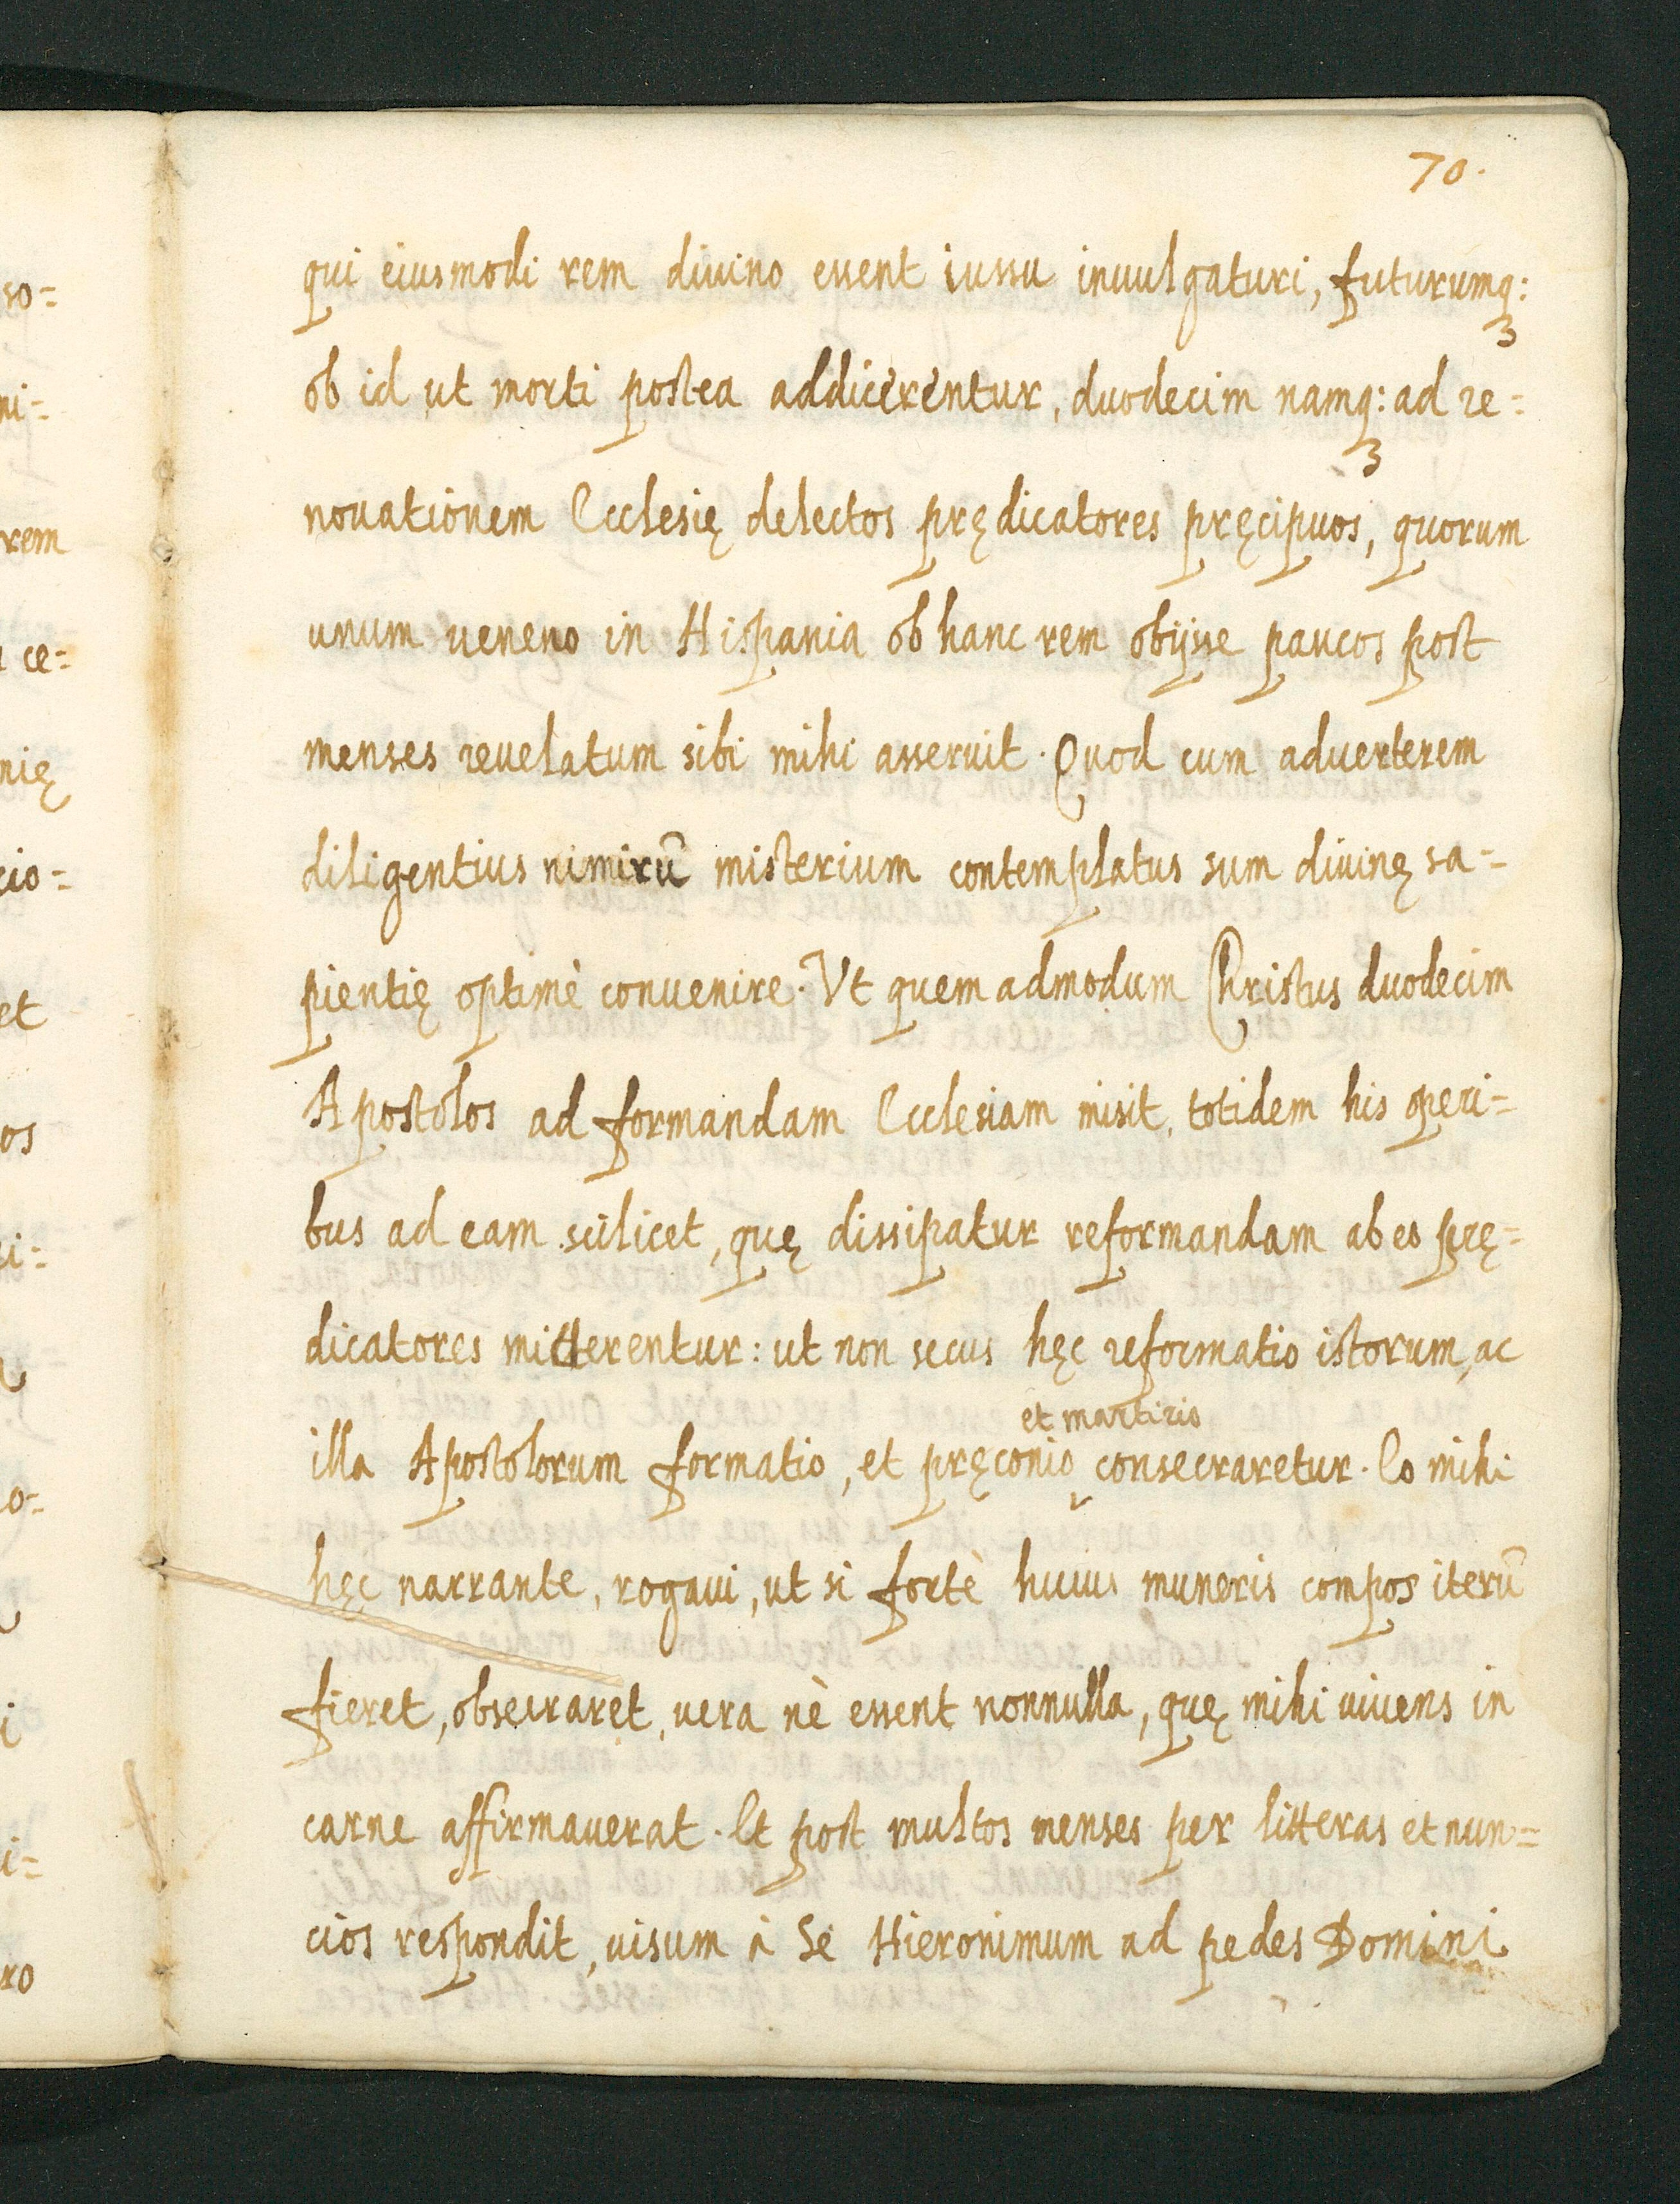 70.
qui eiusmodi rem diuino essent iussu inuulgaturi, futurumq:
ob id ut morti postea addicerentur, duodecim namq: ad re=
nouationem Ecclesię delectos prędicatores pręcipuos, quorum
unum ueneno in Hispania ob hanc rem obijsse paucos post
menses reuelatum sibi mihi asseruit. Quod cum aduerterem
diligentius nimirũ misterium contemplatus sum diuinę sa=
pientię optimè conuenire. Vt quem admodum Christus duodecim
Apostolos ad formandam Ecclesiam misit, totidem his operi=
bus ad eam scilicet, quę dissipatur reformandam ab eo prę=
dicatores mitterentur: ut non secus hęc reformatio istorum, ac
et martirio
illa Apostolorum formatio, et pręconio consecraretur. Eo mihi
hęc narrante, rogaui, ut si fortè huius muneris compos iterũ
fieret, obsecraret, uera nè essent nonnulla, quę mihi uiuens in
carne affirmauerat. Et post multos menses per litteras et nun=
cios respondit, uisum à Se Hieronimum ad pedes Domini
so=
ni=
rem
ce=
nię
cio=
et
os
i=
o=
i
i=
ro